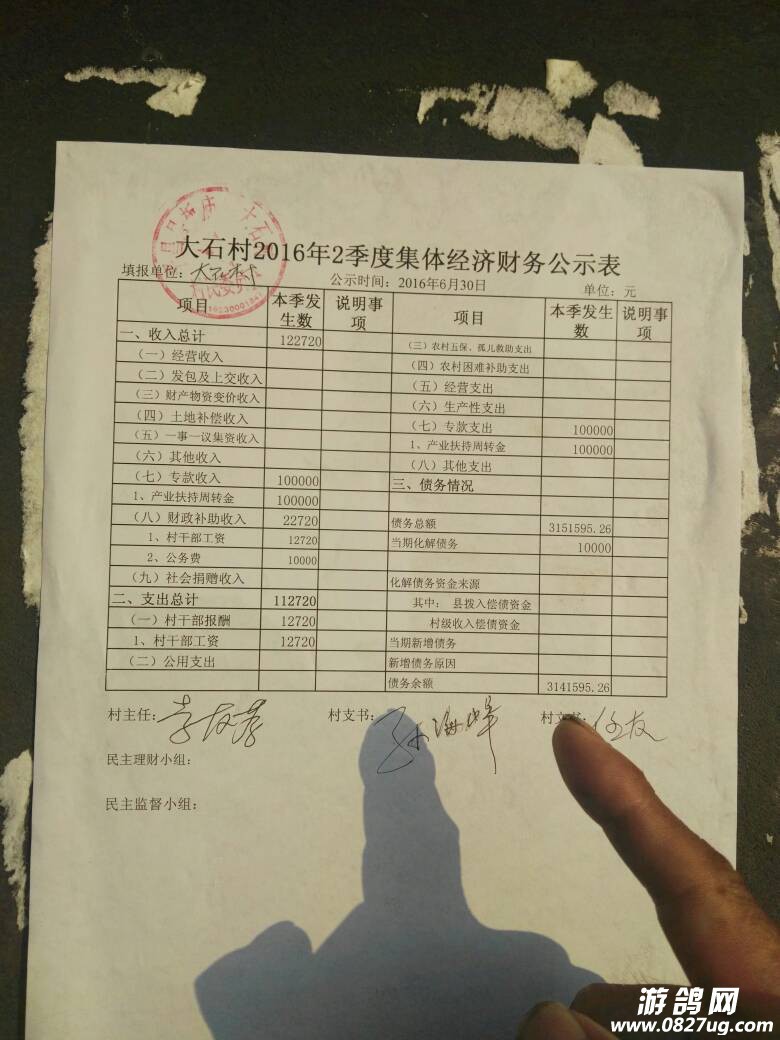 大石村2016年2季度集体经济财务公示表
填报单位：大石村 公示时间：2016年6月30日 单位：元
项目 本季发生数 说明事项 项目 本季发生数 说明事项
一、收入总计 122720 （三）农村五保、孤儿救助支出
（一）经营收入 （四）农村困难补助支出
（二）发包及上交收入 （五）经营支出
（三）财产物资变价收入 （六）生产性支出
（四）土地补偿收入 （七）专款支出 100000
（五）一事一议集资收入 1、产业扶持周转金 100000
（六）其他收入 （八）其他支出
（七）专款收入 100000 三、债务情况
1、产业扶持周转金 100000
（八）财政补助收入 22720 债务总额 3151595.26
1、村干部工资 12720 当期化解债务 10000
2、公务费 10000
（九）社会捐赠收入 化解债务资金来源
二、支出总计 112720 其中： 县拨入偿债资金
（一）村干部报酬 12720 村级收入偿债资金
1、村干部工资 12720 当期新增债务
（二）公用支出 新增债务原因
债务余额 3141595.26
村主任： 村支书： 村文书：
民主理财小组：
民主监督小组：
游鸽网
www.0827ug.com